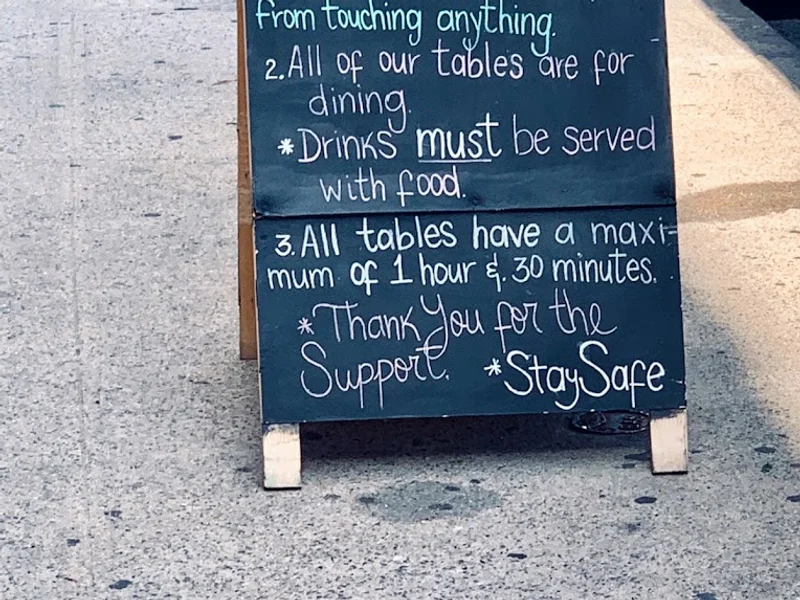 from touching anything.
2. All of our tables are for
dining.
*Drinks must be served
with food.
3. All tables have a maxi-
mum of 1 hour &. 30 minutes.
*Thank You for the
Support. *Stay Safe